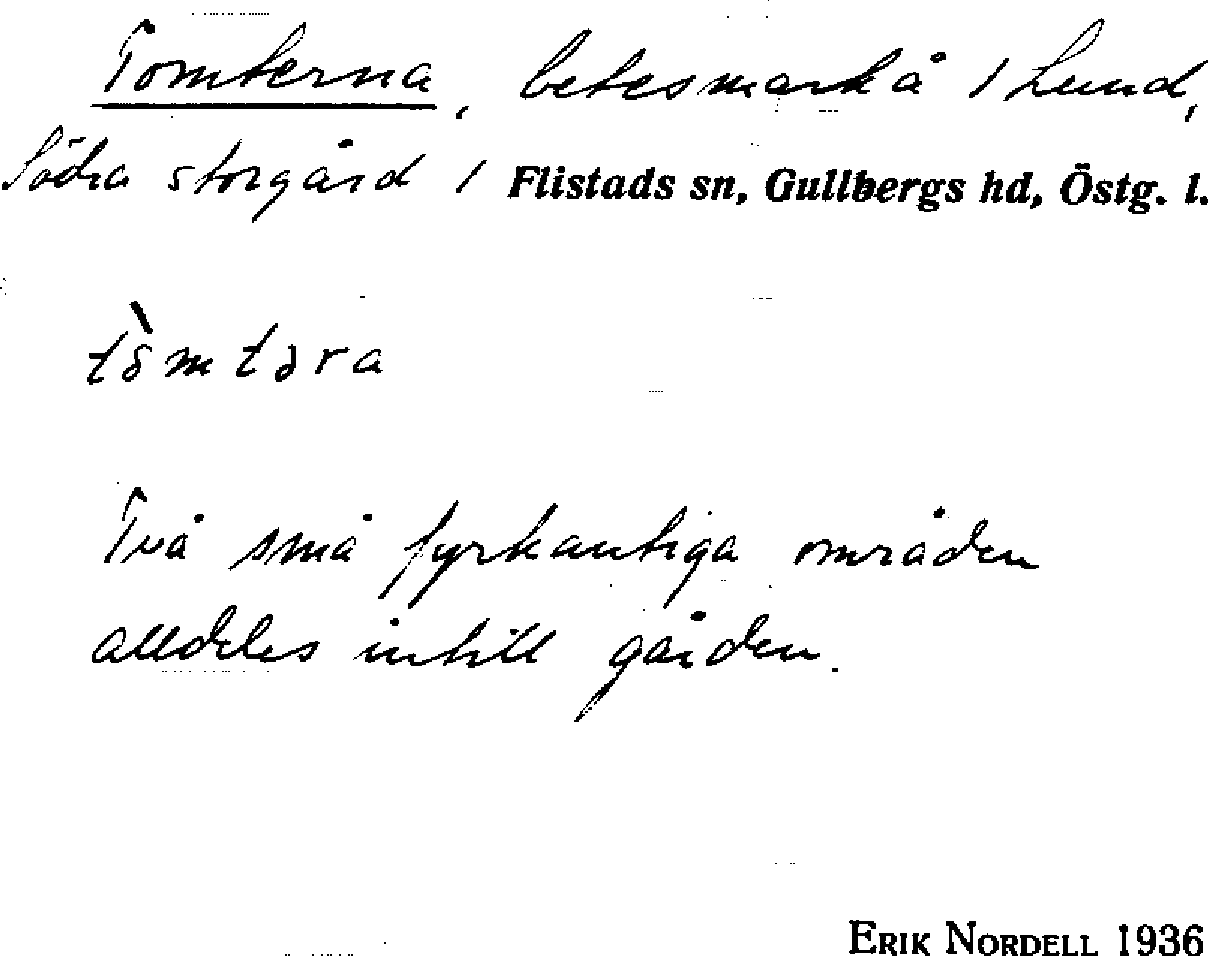 Tomterna, betesmark å 1 Lund,
Södra storgård 1 Flistads sn, Gullbergs hd, Östg. l.
tòmtəra
Två små fyrkantiga områden
alldeles intill gården.
ERIK NORDELL 1936